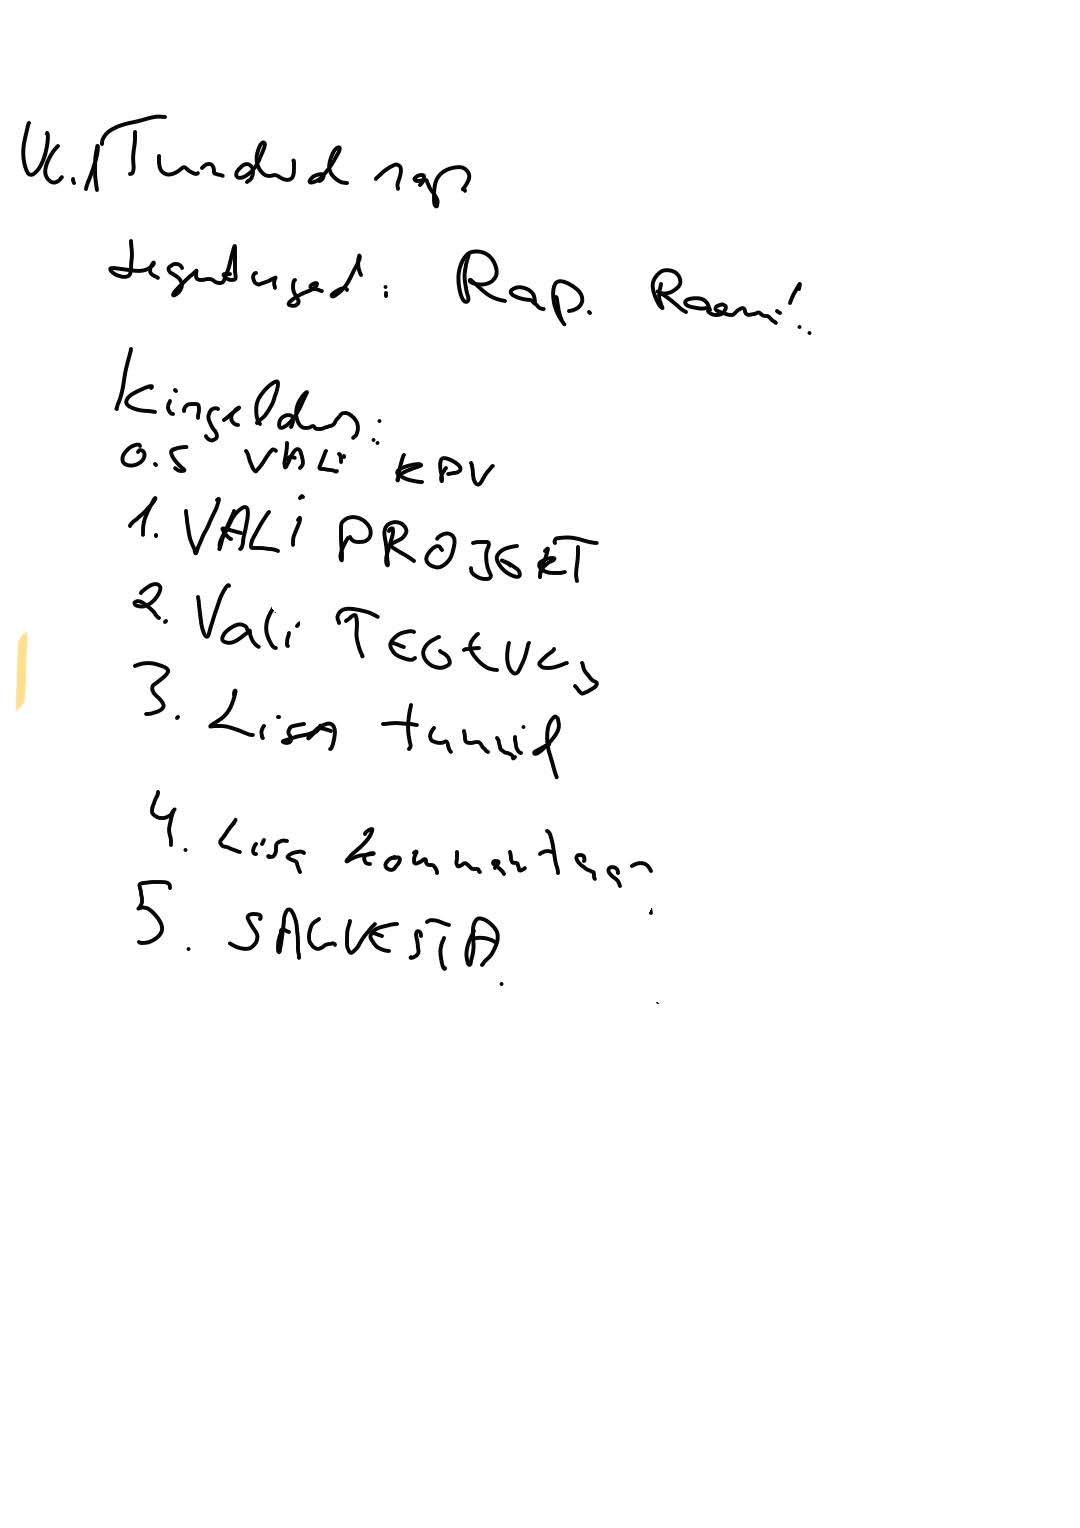 UC.1 Tundud rap
tegutsejad: Rap. Raami!
Kirjeldus:
0.5 VALI KPV
1. VALI PROJEKT
2. Vali TEGEVUS
3. LISA tunnid
4. Lisa kommentaar
5. SALVESTA.